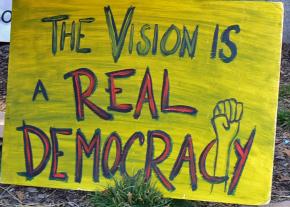 THE VISION IS
A REAL
DEMOCRACY